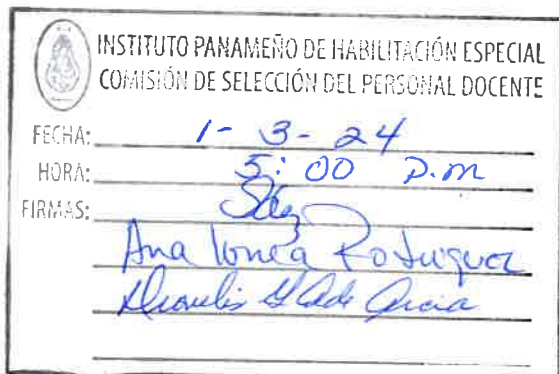 INSTITUTO PANAMEÑO DE HABILITACIÓN ESPECIAL
COMISIÓN DE SELECCIÓN DEL PERSONAL DOCENTE
FECHA: 1-3-24
HORA: 5:00 P.m
FIRMAS:
Ana